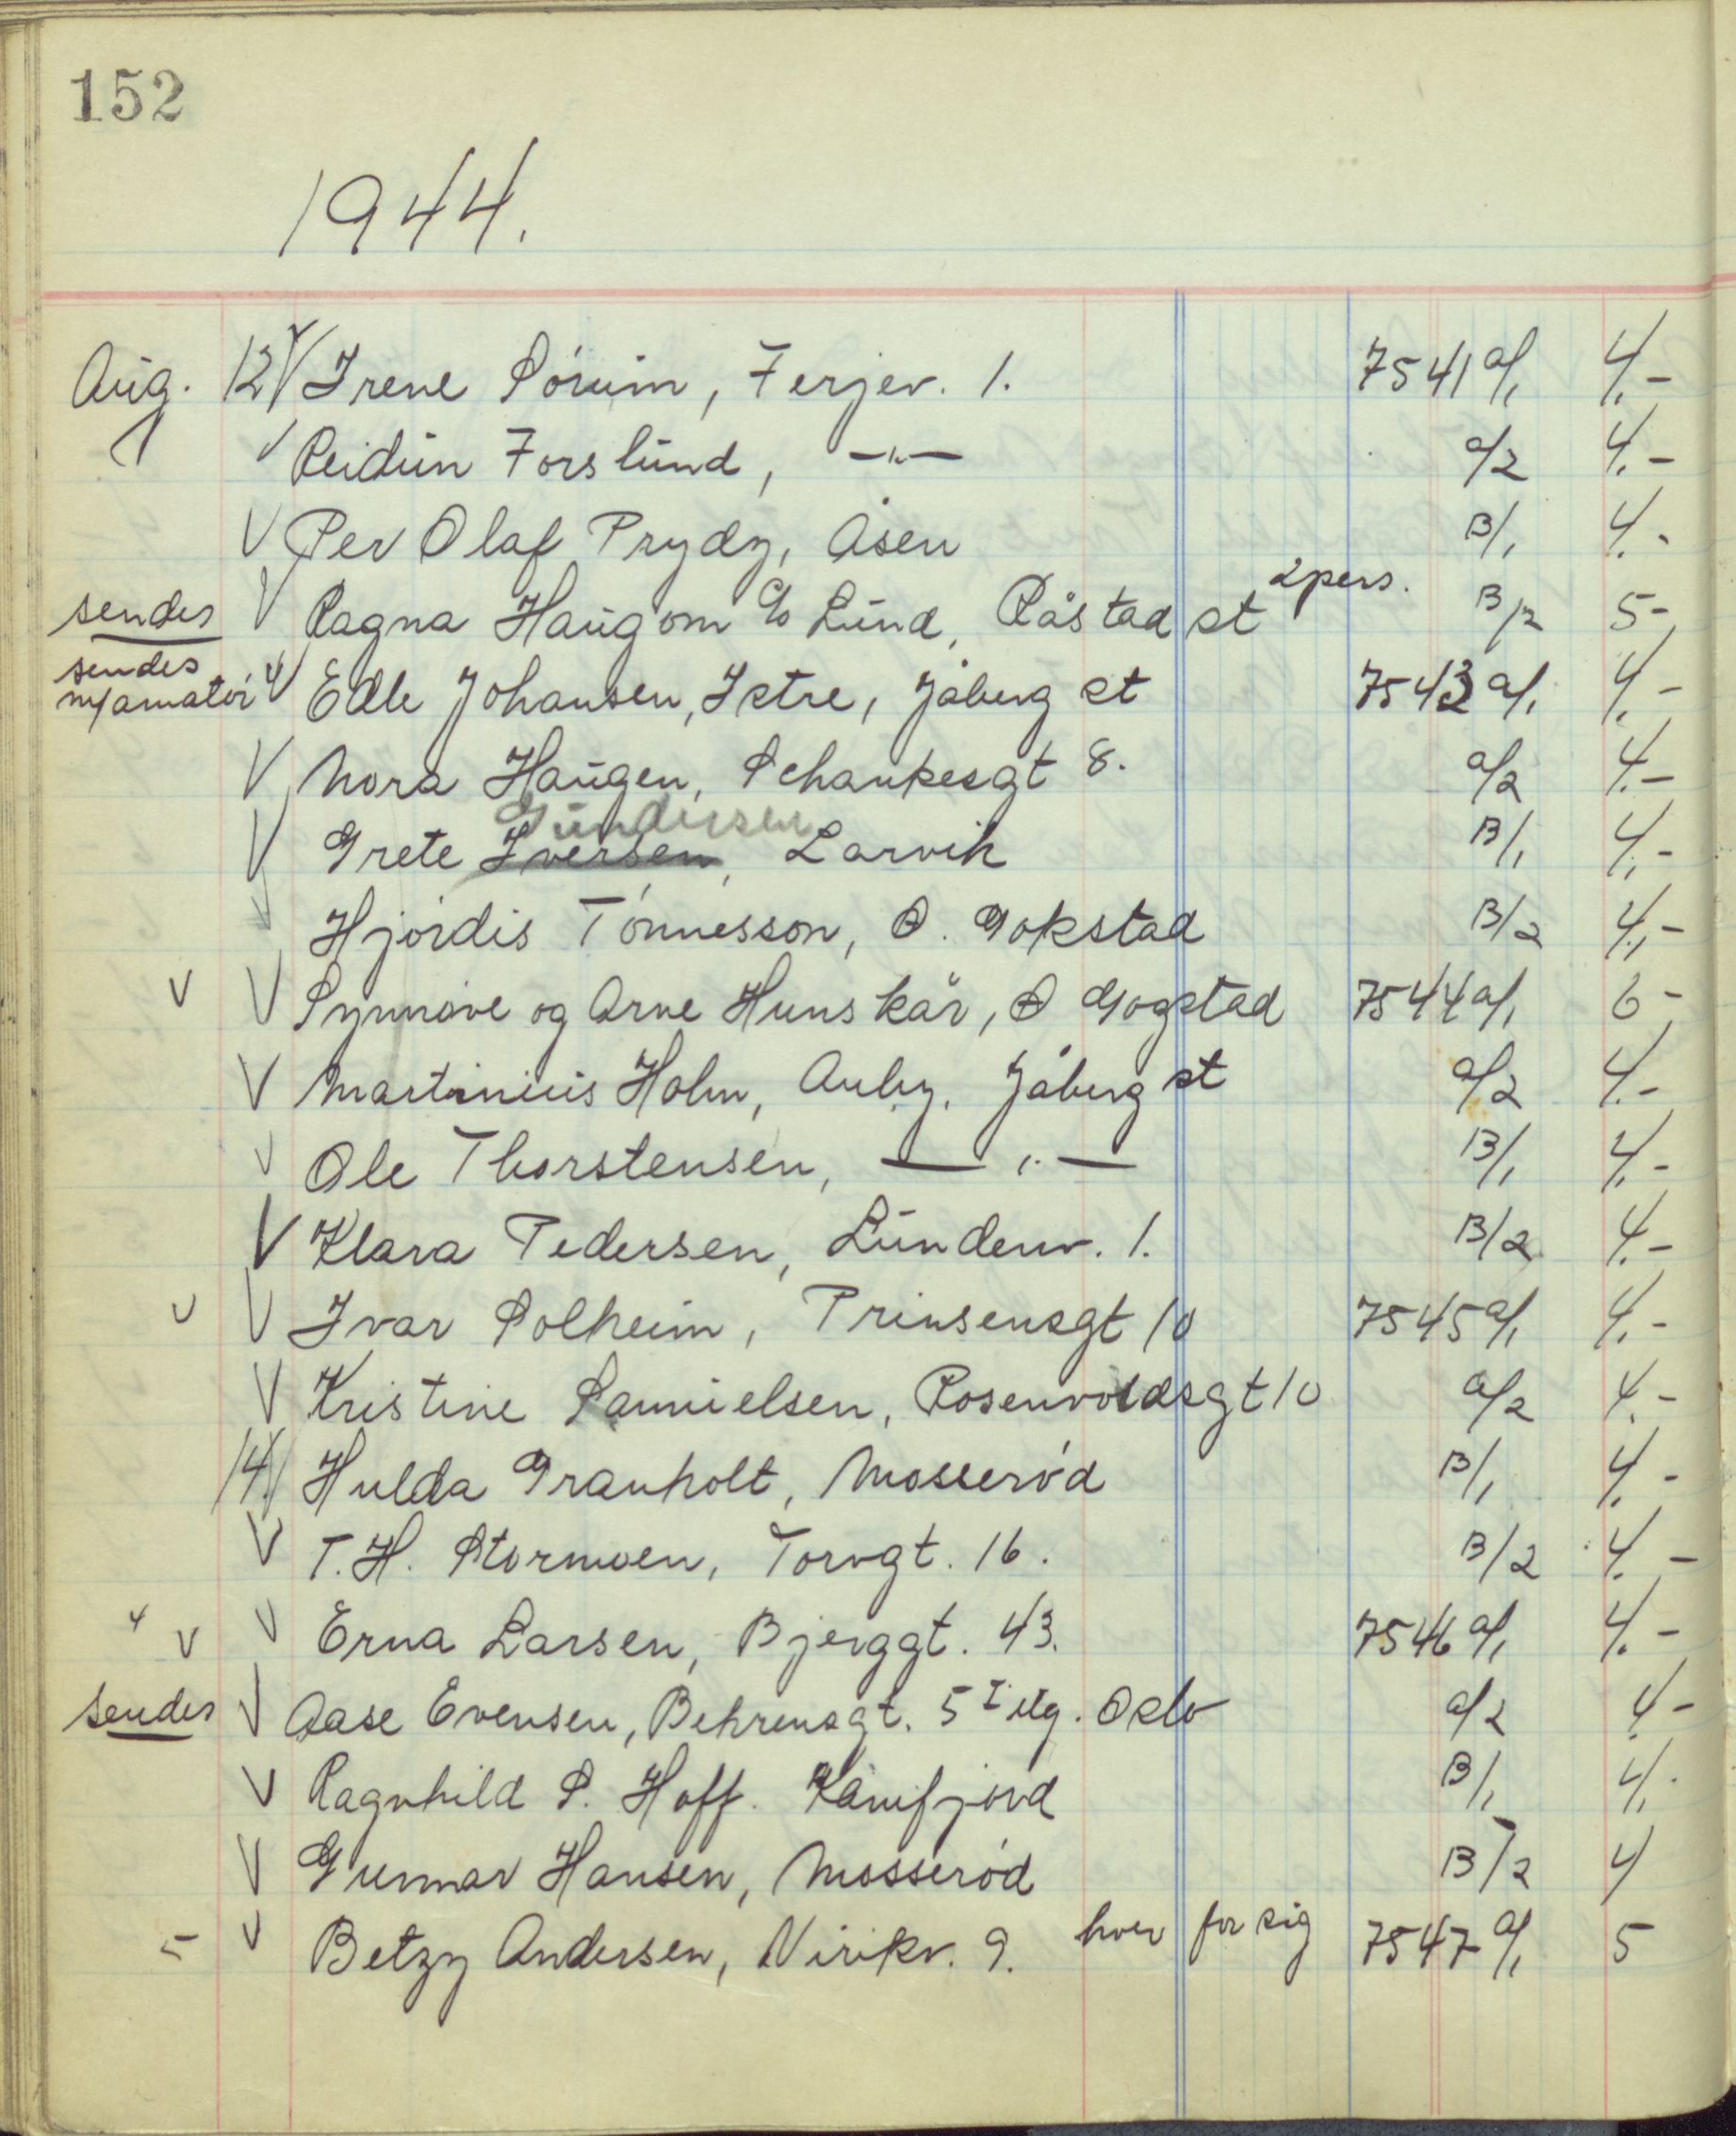 152
1944.
Aug. 12 V Irene Sörum, Ferjev. 1. 7541 a/1 4.-
V Reidun Forslund, —"— a/2 4.-
V Per Olaf Prydz, Åsen B/1 4.-
sendes V Ragna Haugom c/o Lund, Råstad st 2 pers. B/2 5-
sendes m/amatör V Edle Johansen, Istre, Jåberg st 7543 a/1 4.-
V Nora Haugen, Schankesgt 8. a/2 4.-
Gundersen
V Grete Iversen, Larvik B/1 4.-
V Hjördis Tönnesson, Ö. Gokstad B/2 4.-
V V Synnöve og Arne Hunskår, Ö Gogstad 7544 a/1 6-
V Martinius Holm, Auby, Jåberg st a/2 4.-
V Ole Thorstensen, —"— B/1 4.-
V Klara Pedersen, Lundenv. 1. B/2 4.-
V V Ivar Solheim, Prinsensgt 10 7545 a/1 4.-
V Kristine Samuelsen, Rosenvoldsgt 10 a/2 4.-
14. V Hulda Granholt, Mosseröd B/1 4.-
V T.H. Stormoen, Torvgt. 16. B/2 4.-
4 V V Erna Larsen, Bjerggt. 43. 7546 a/1 4.-
sendes V Aase Evensen, Behrensgt. 5 I etg. Oslo a/2 4-
V Ragnhild S. Hoff. Kamfjord B/1 4.
V Gunnar Hansen, Mosseröd B/2 4
5 V Betzy Andersen, Nirikv. 9. hver for sig 7547 a/1 5